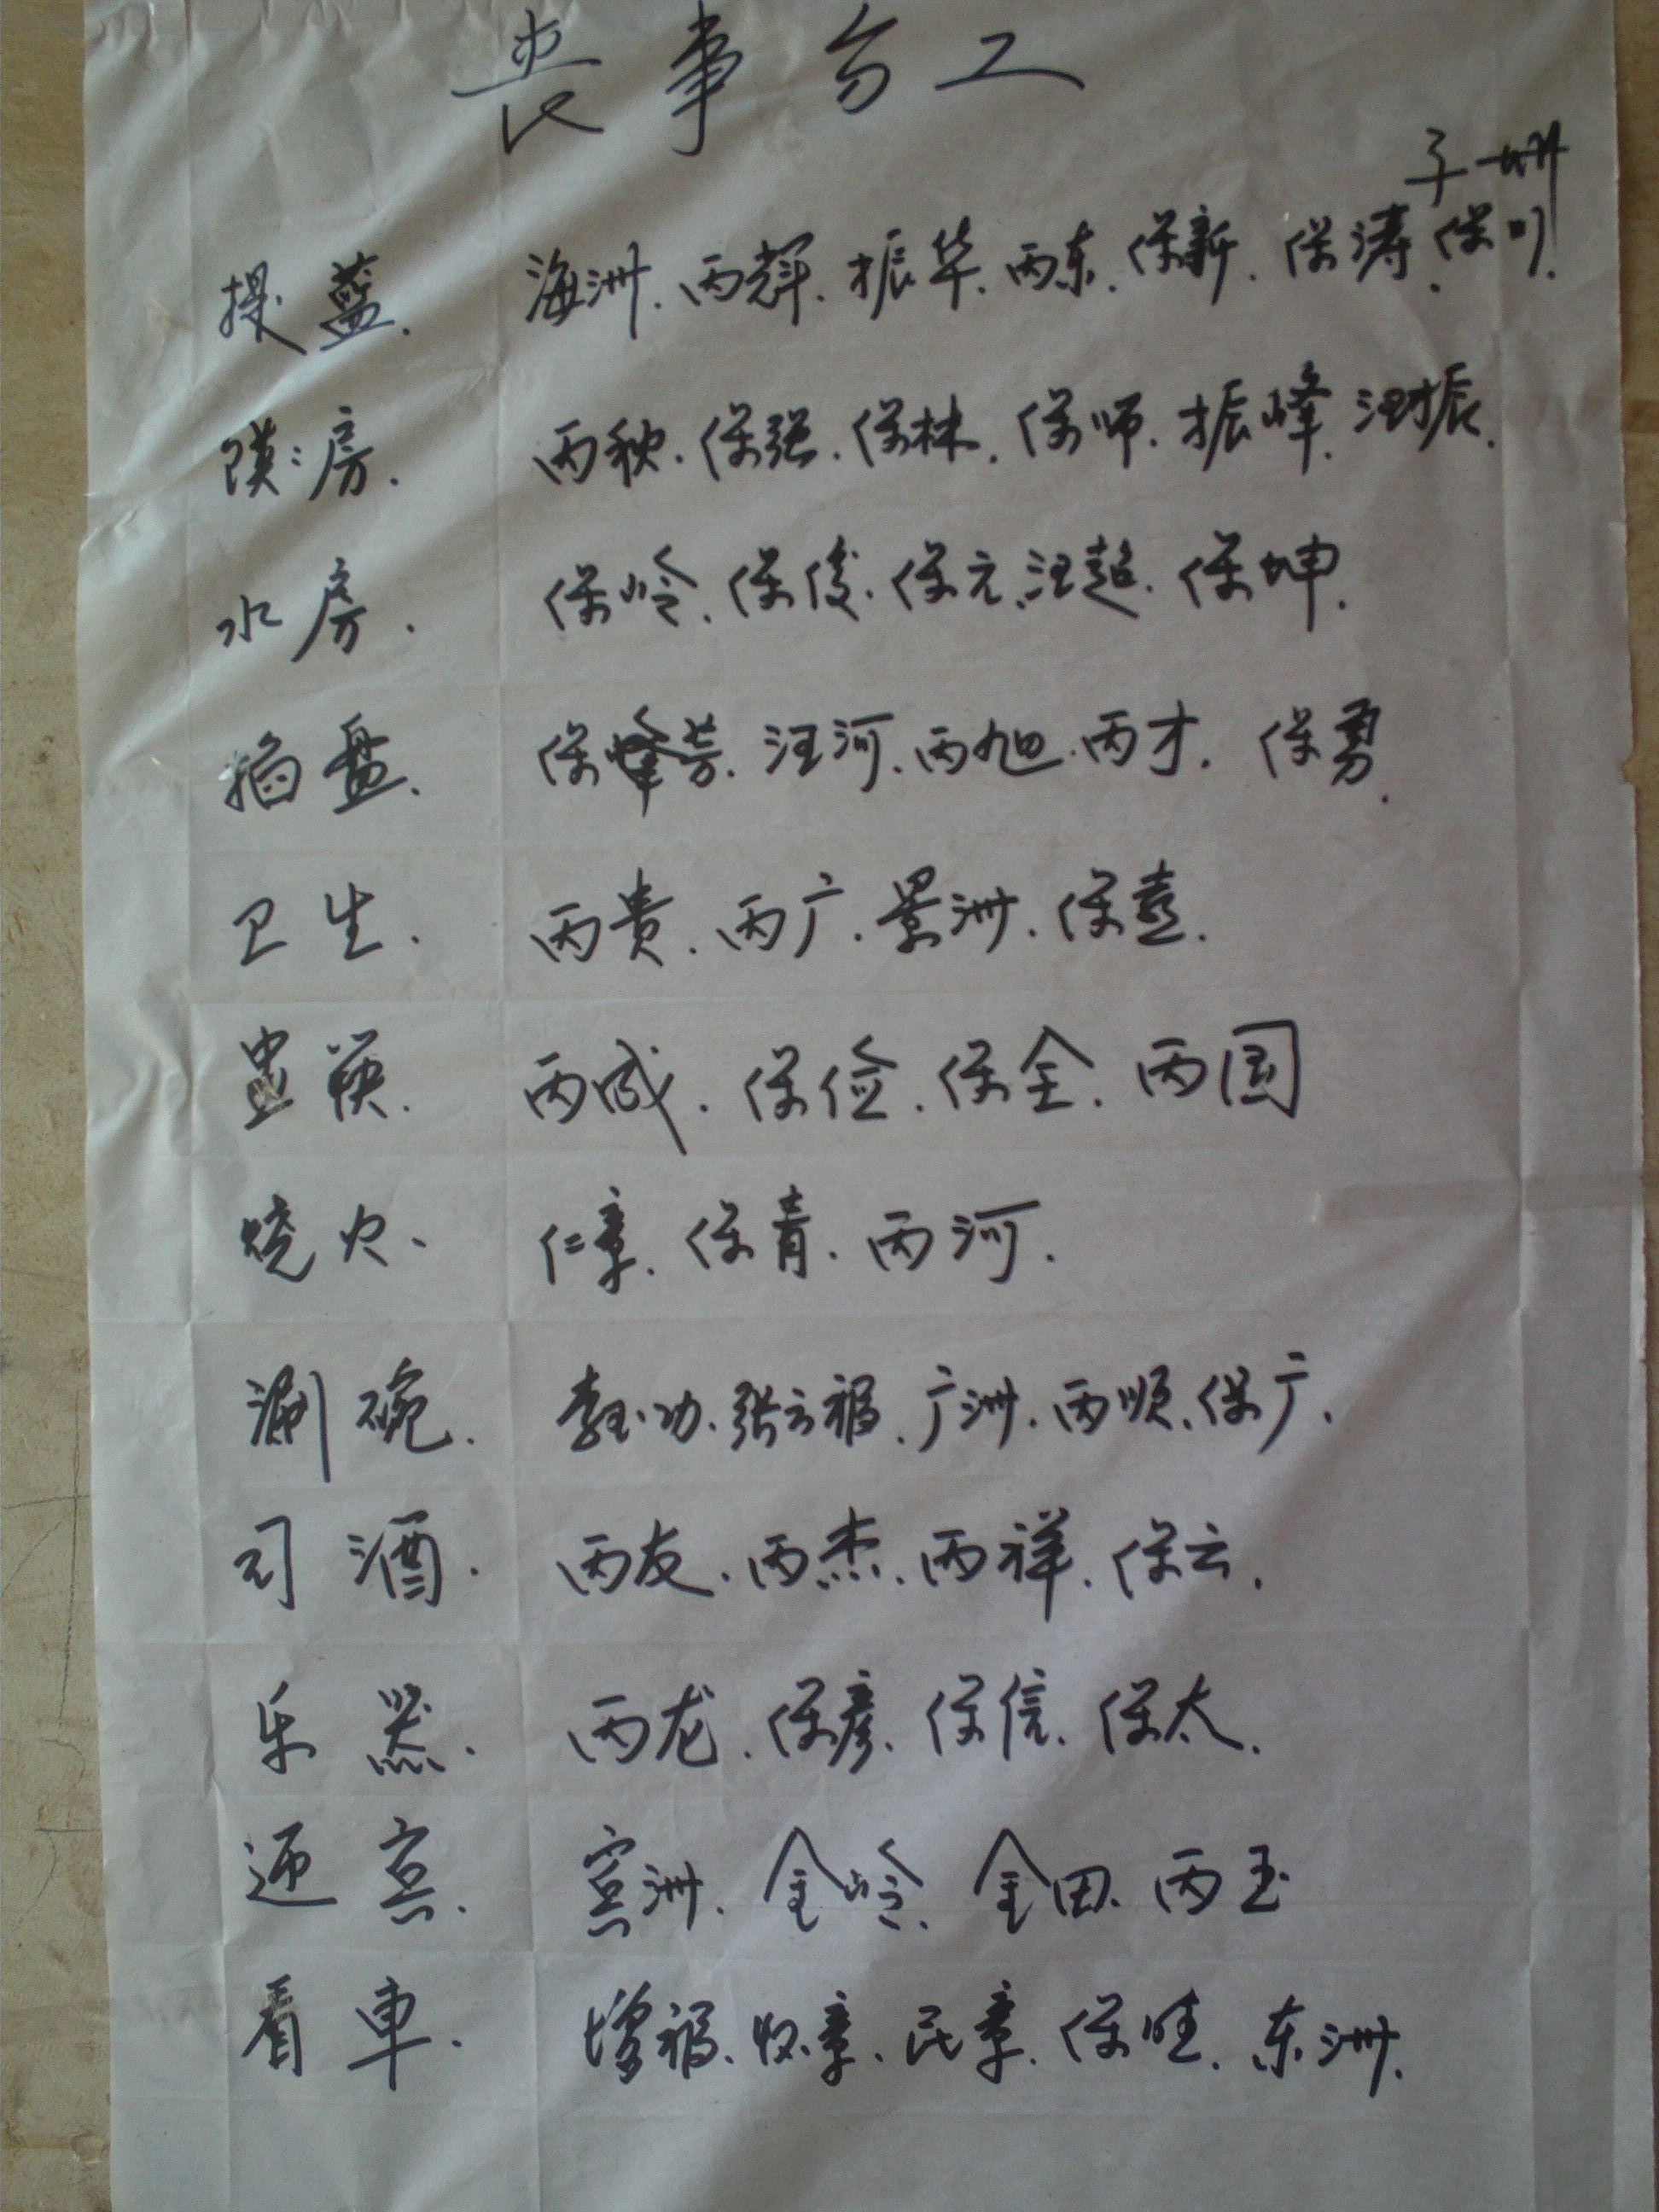 丧事分工
子洲
提蓝. 海洲. 丙辉. 振华. 丙东. 保新. 保涛. 保川.
馍房. 丙秋. 保强. 保林. 保师. 振峰. 汪振.
水房. 保岭. 保俊. 保元. 汪超. 保坤.
掐盘. 保芳. 汪河. 丙旭. 丙才. 保勇.
卫生. 丙贵. 丙广. 景洲. 保喜.
筷. 丙成. 保俭. 保全. 丙国
烧火. 仁章. 保青. 丙河.
涮碗. 功. 张云福. 广洲. 丙顺. 保广.
司酒. 丙友. 丙杰. 丙祥. 保云.
乐器. 丙龙. 保彦. 保信. 保太.
迎宾. 宾洲. 金岭. 金田. 丙玉
看車. 增福. 收章. 民章. 保旺. 东洲.